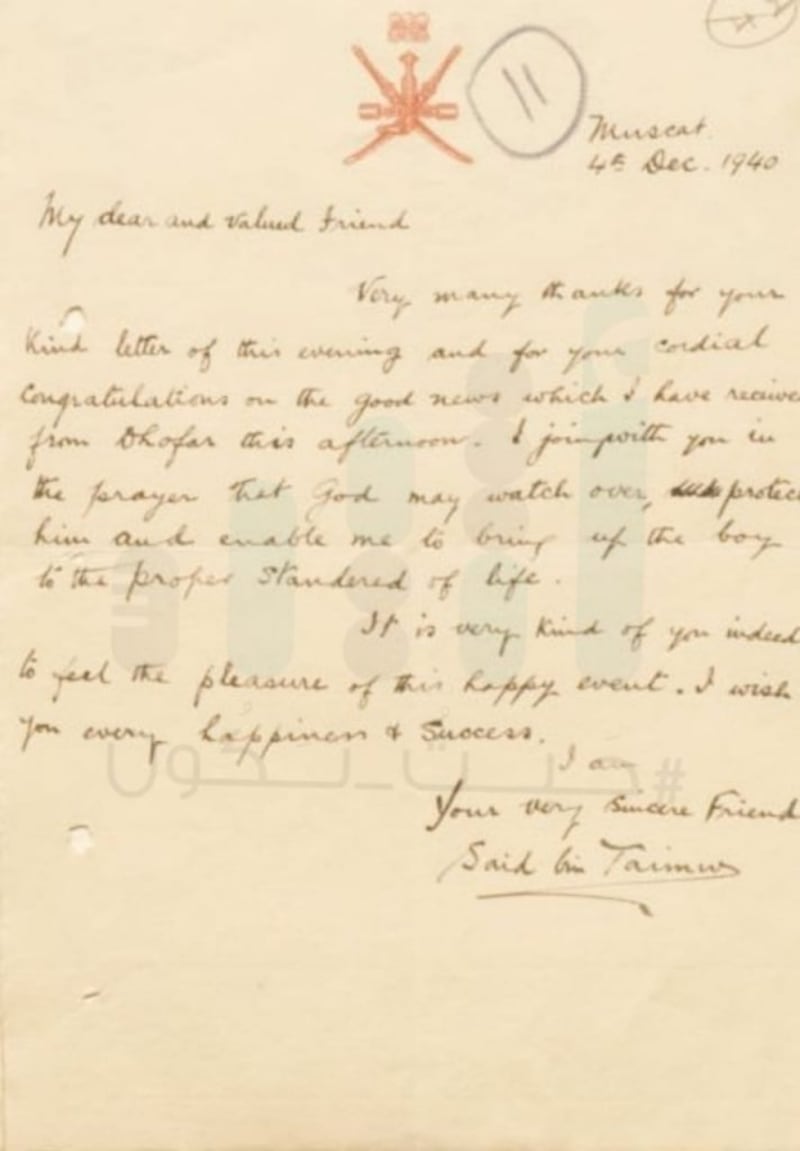 11
Muscat.
4th Dec. 1940
My dear and valued Friend
Very many thanks for your
kind letter of this evening and for your cordial
congratulations on the good news which I have receive
from Dhofar this afternoon. I join with you in
the prayer that God may watch over, protec
him and enable me to bring up the boy
to the proper standered of life.
It is very kind of you indeed
to feel the pleasure of this happy event. I wish
you every happiness & success.
I am
Your very sincere Friend
Said bin Taimur